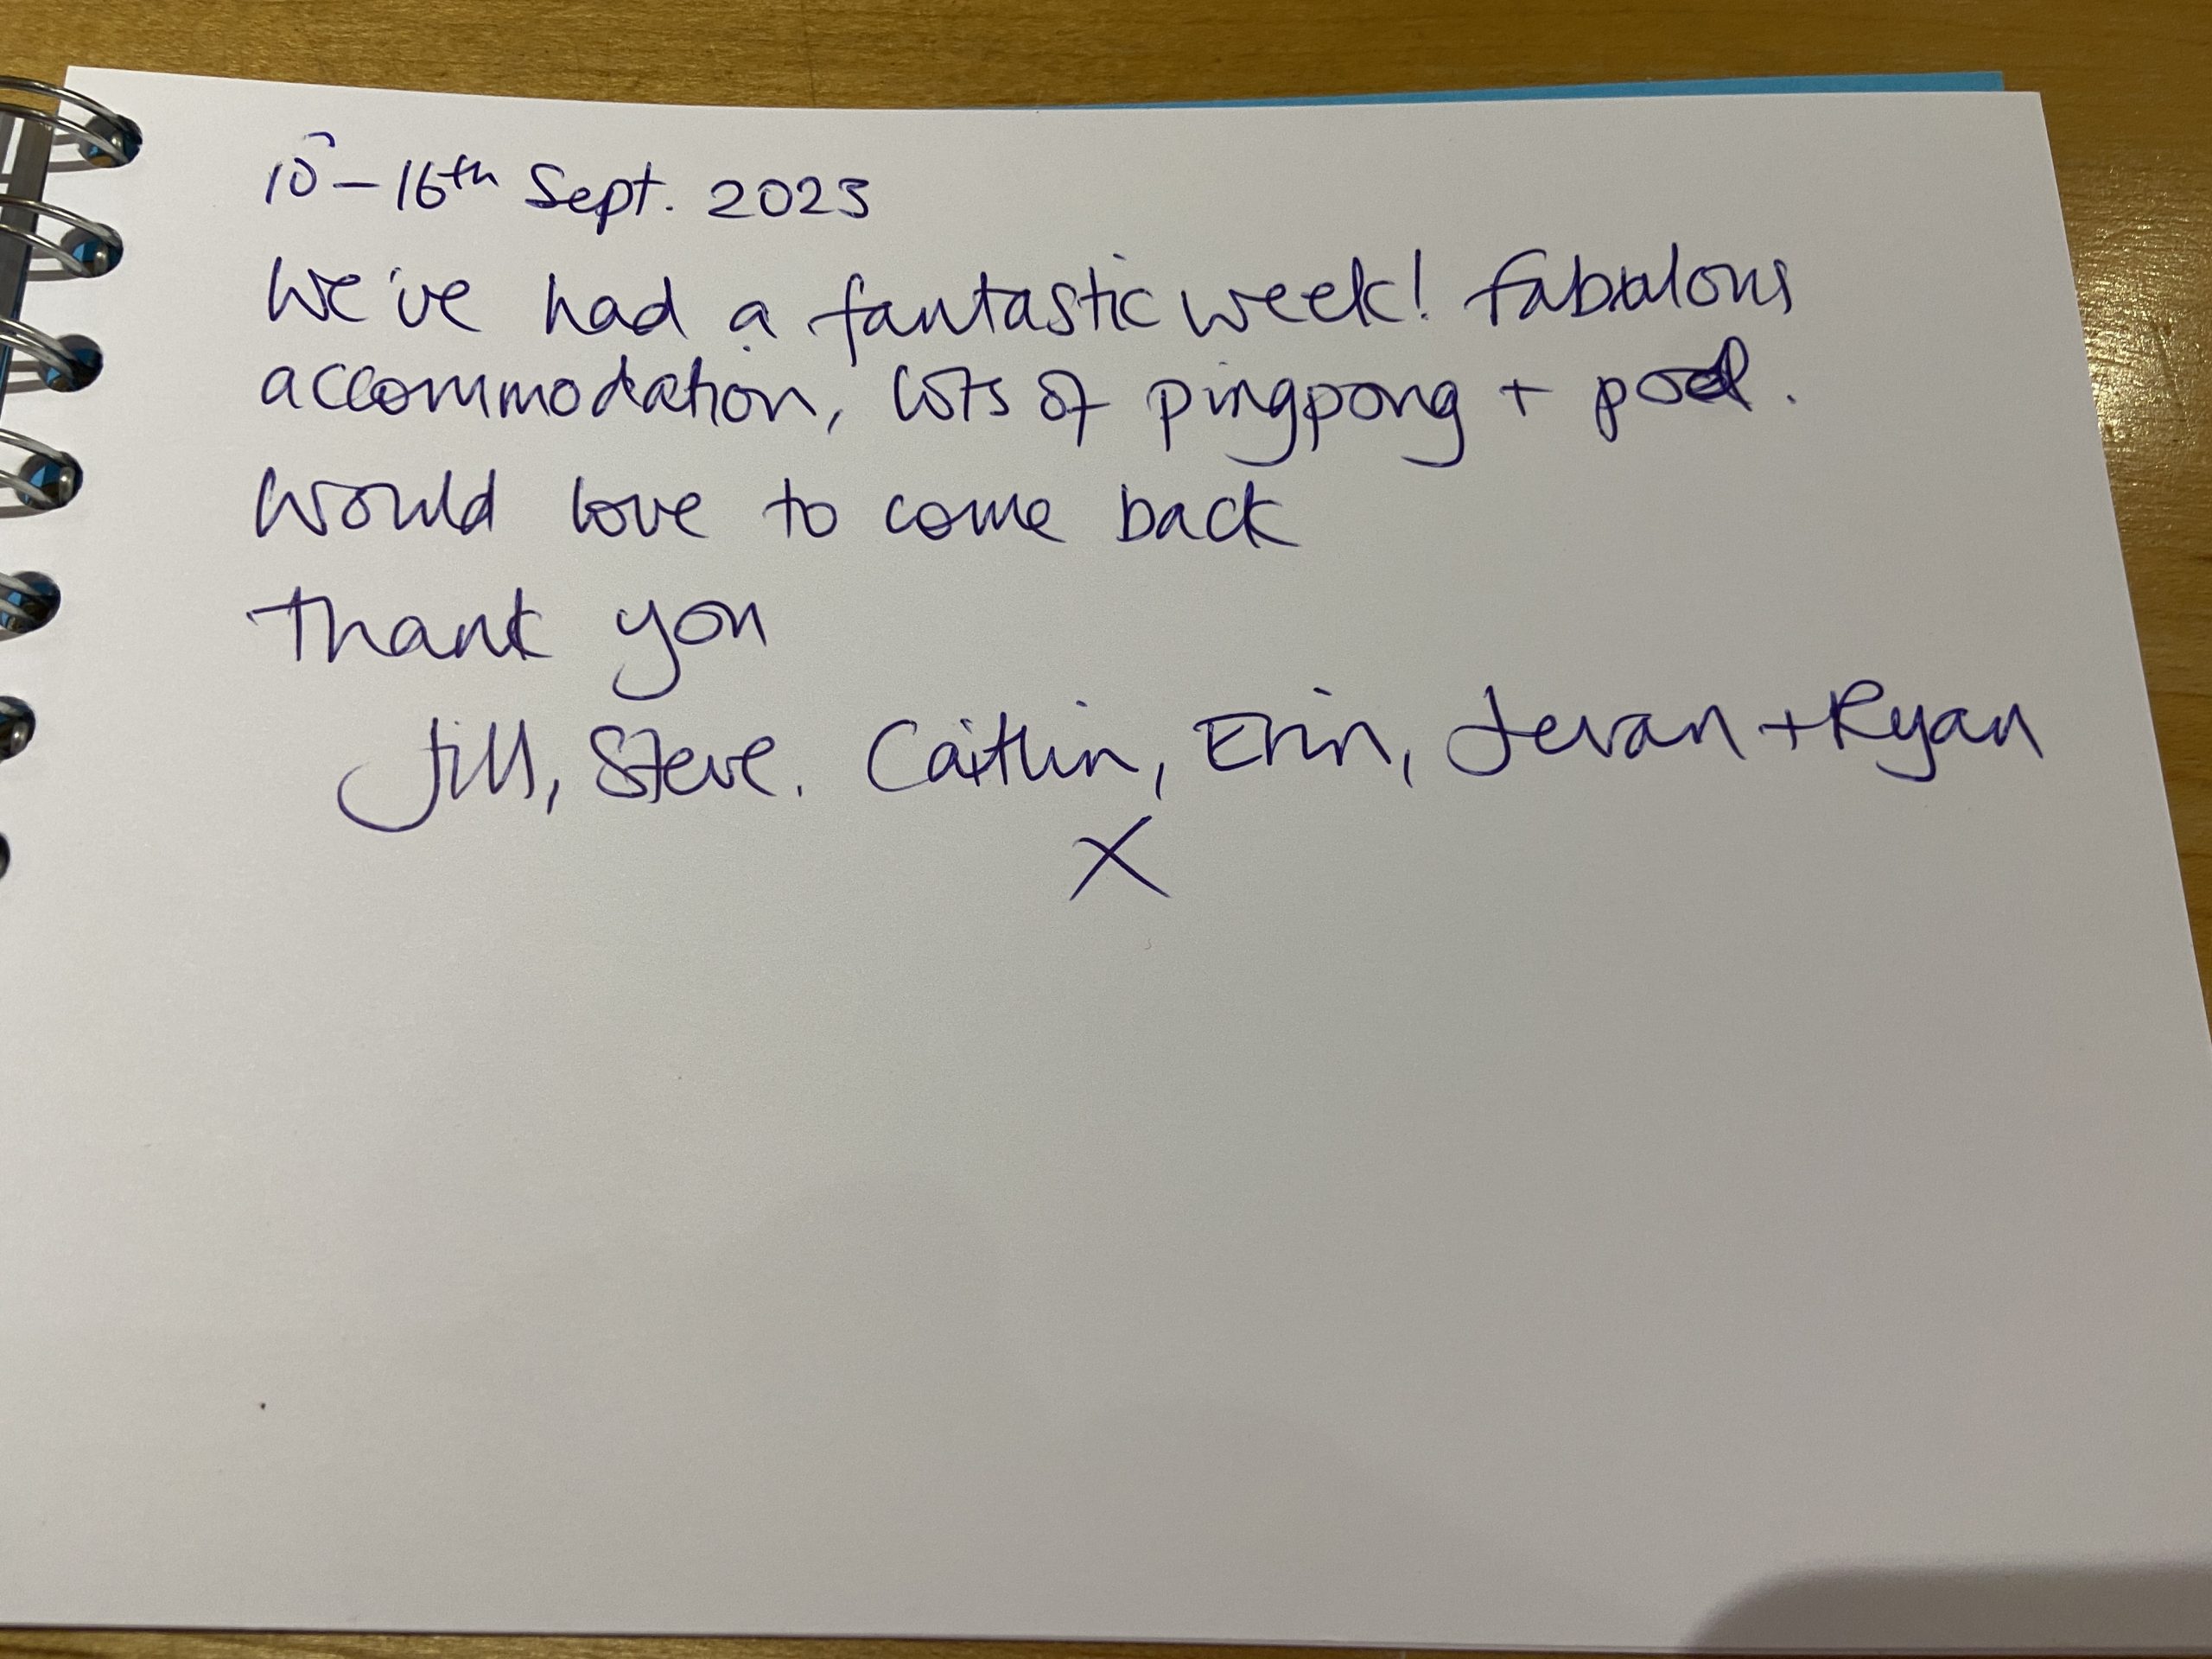 10 - 16th Sept. 2023
We've had a fantastic week! Fabulous
accommodation, lots of pingpong + pool.
Would love to come back
Thank you
Jill, Steve. Caitlin, Erin, Jevan + Ryan
X